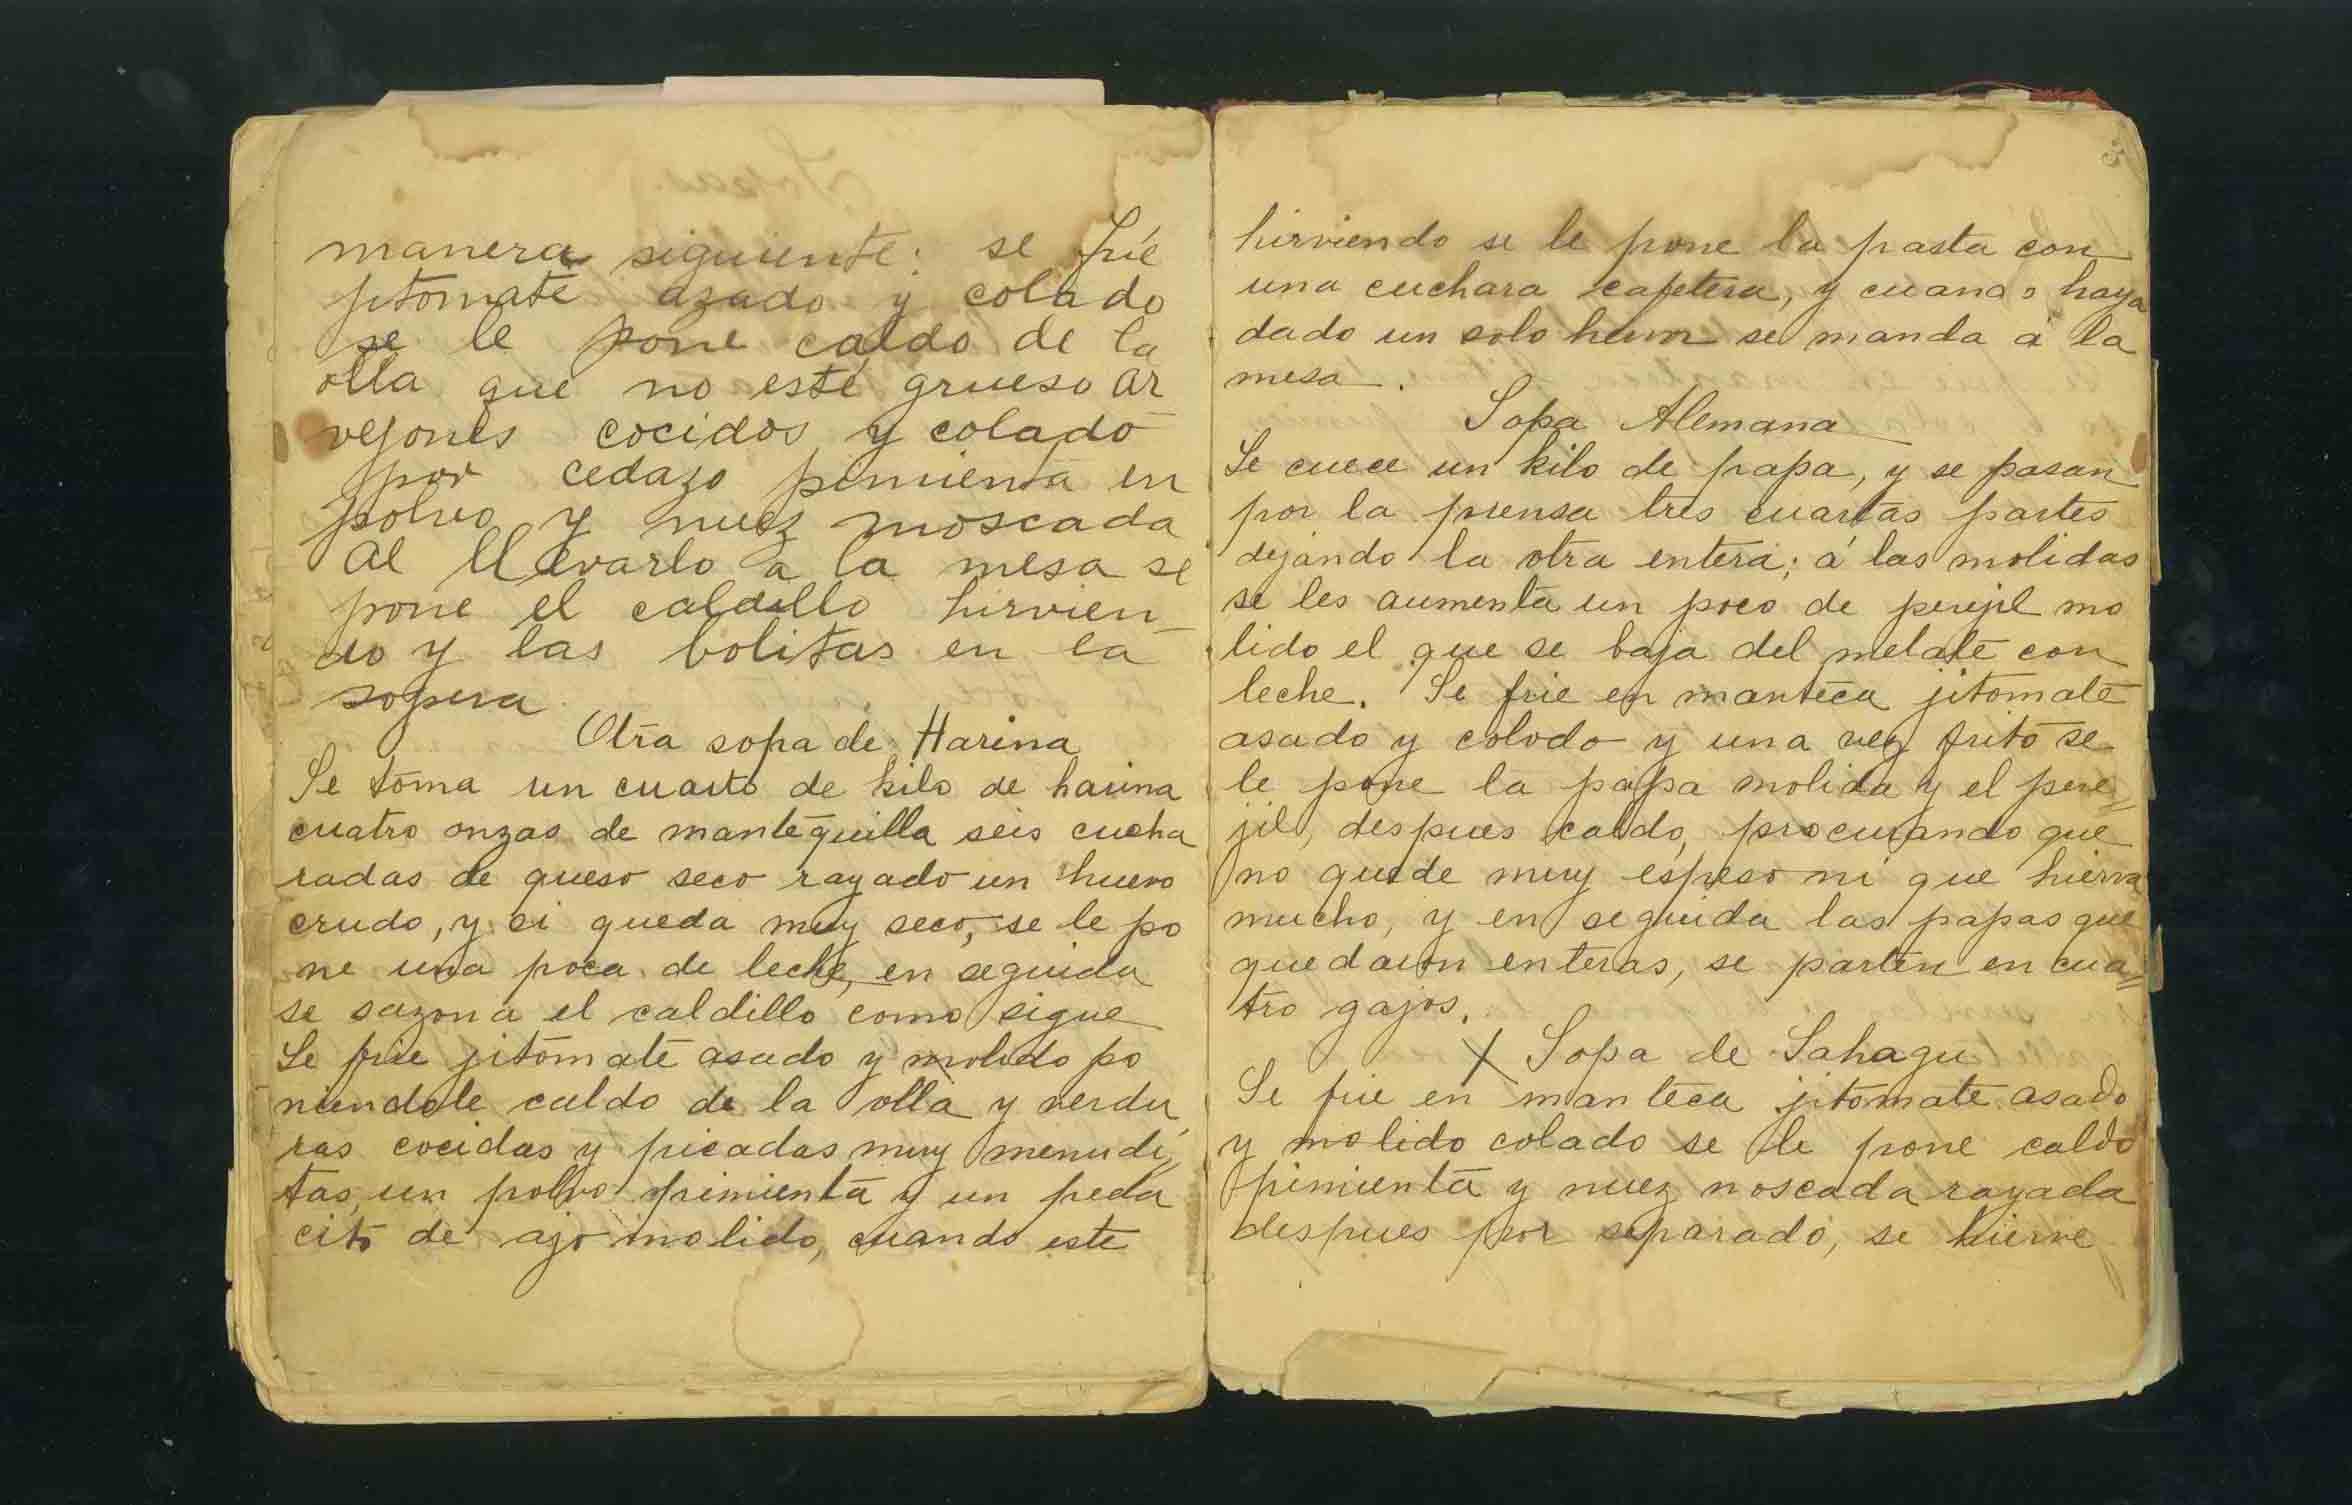 manera siguiente: se frie
jitomate azado y colado
se le pone caldo de la
olla que no esté grueso ar
vejones cocidos y colado
por cedazo pimienta en
polvo y nuez moscada
al llevarlo a la mesa se
pone el caldillo hirvien
do y las bolitas en la
sopera
Otra sopa de Harina
Se toma un cuarto de kilo de harina
cuatro onzas de mantequilla seis cucha
radas de queso seco rayado un huevo
crudo, y si queda muy seco, se le po
ne una poca de leche, en seguida
se sazona el caldillo como sigue
Se frie jitomate asado y molido po
niendole caldo de la olla y verdu
ras cocidas y picadas muy menudi
tas, un polvo pimienta y un peda
cito de ajo molido, cuando este
hirviendo se le pone la pasta con
una cuchara cafetera, y cuando haya
dado un solo hervor se manda á la
mesa.
Sopa Alemana
Se cuece un kilo de papa, y se pasan
por la prensa tres cuartas partes
dejando la otra entera; á las molidas
se les aumenta un poco de perejil mo
lido el que se baja del metate con
leche. Se frie en manteca jitomate
asado y colodo y una vez frito se
le pone la papa molida y el pere=
jil, despues caldo, procurando que
no quede muy espeso ni que hierva
mucho, y en seguida las papas que
quedaron enteras, se parten en cua=
tro gajos.
X Sopa de Sahagu
Se frie en manteca jitomate asado
y molido colado se le pone caldo
pimienta y nuez noscada rayada
despues por separado, se hierve